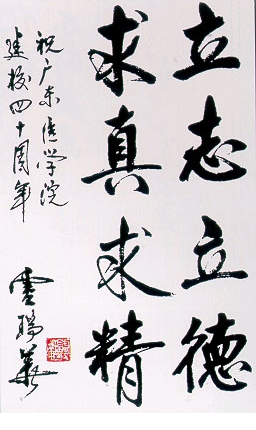 立志立德
求真求精
祝广东医学院
建校四十周年